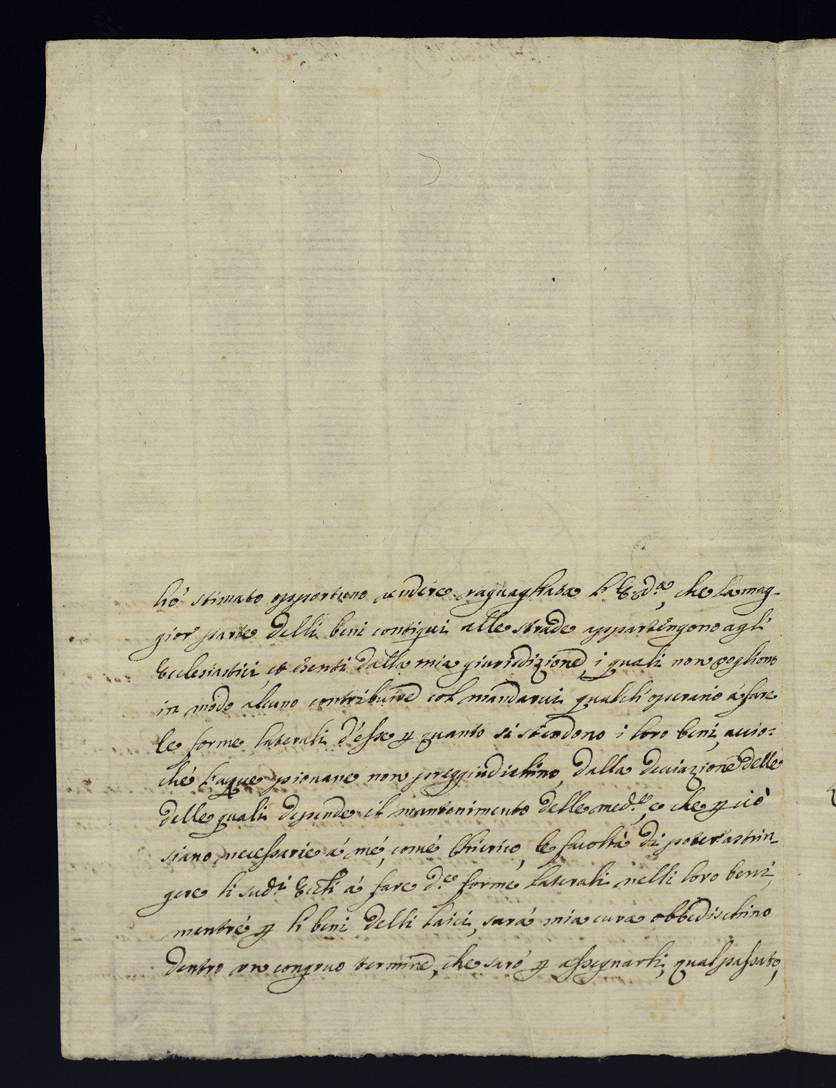 hò stimato opportuno rendere raguagliata l'E. V., che la mag-
gior parte delli beni contigui alle strade appartengono agli
Ecclesiastici, et esenti dalla mia giurisdizione, i quali non vogliono
in modo alcuno contribuire col mandarvi qualch'operario à fare
le forme laterali d'esse p quanto si stendono i loro beni, accio-
ché l'aque piovane non preggiudichino, dalla deviazione delle
delle quali depende il mantenimento delle med.e, e che p ciò
siano necessarie à mé, comé Chierico, le facoltà di poter astrin
gere li sud.i Eccli à fare d.e forme laterali nelli loro beni,
mentré p li beni delli laici, sarà mia cura obbedischino
dentro un congruo termine, che sarò p assegnarli, qual passato,